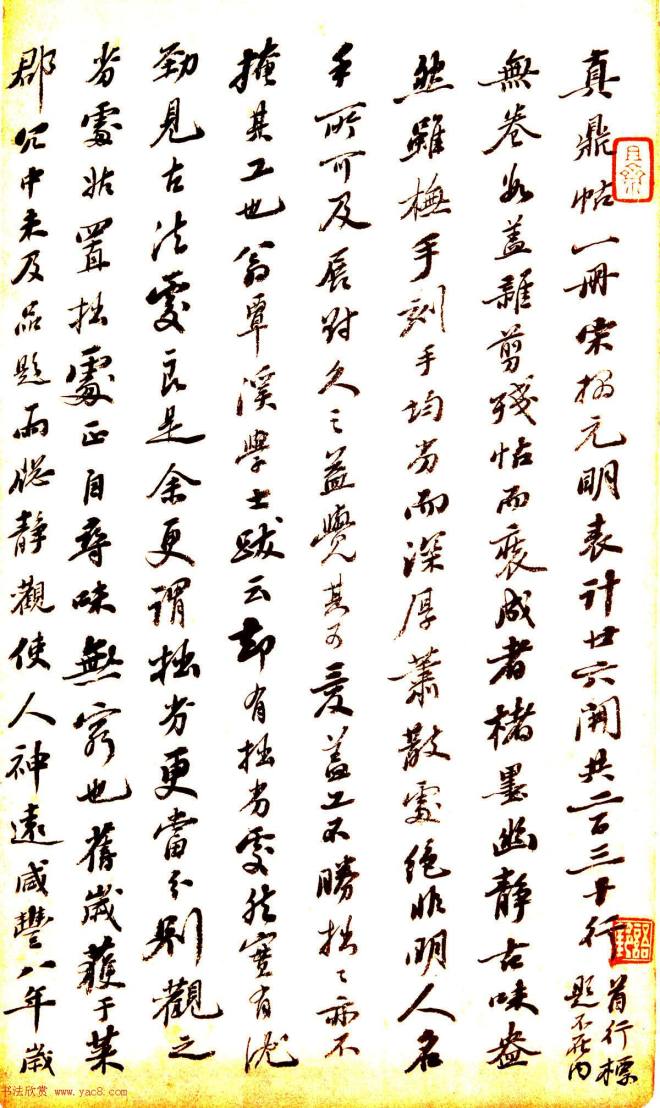 真鼎帖一冊宋搨元明表計廿六開共二百三十行首行標題不在內
無卷數蓋雜剪殘帖而裒成者楮墨幽靜古味盎
然雖橅手刻手均劣而深厚蕭散處絕非明人名
手所可及展對久之益覺其可愛蓋工不勝拙拙亦不
掩其工也翁覃溪學士跋云却有拙劣處然實有沈
勁見古法處良是余更謂拙劣更當分別觀之
劣處姑置拙處正自尋味無窮也舊歲獲于萊
郡公中未及品題雨牕靜觀使人神遠咸豐八年歲
书法欣赏 www.yac8.com